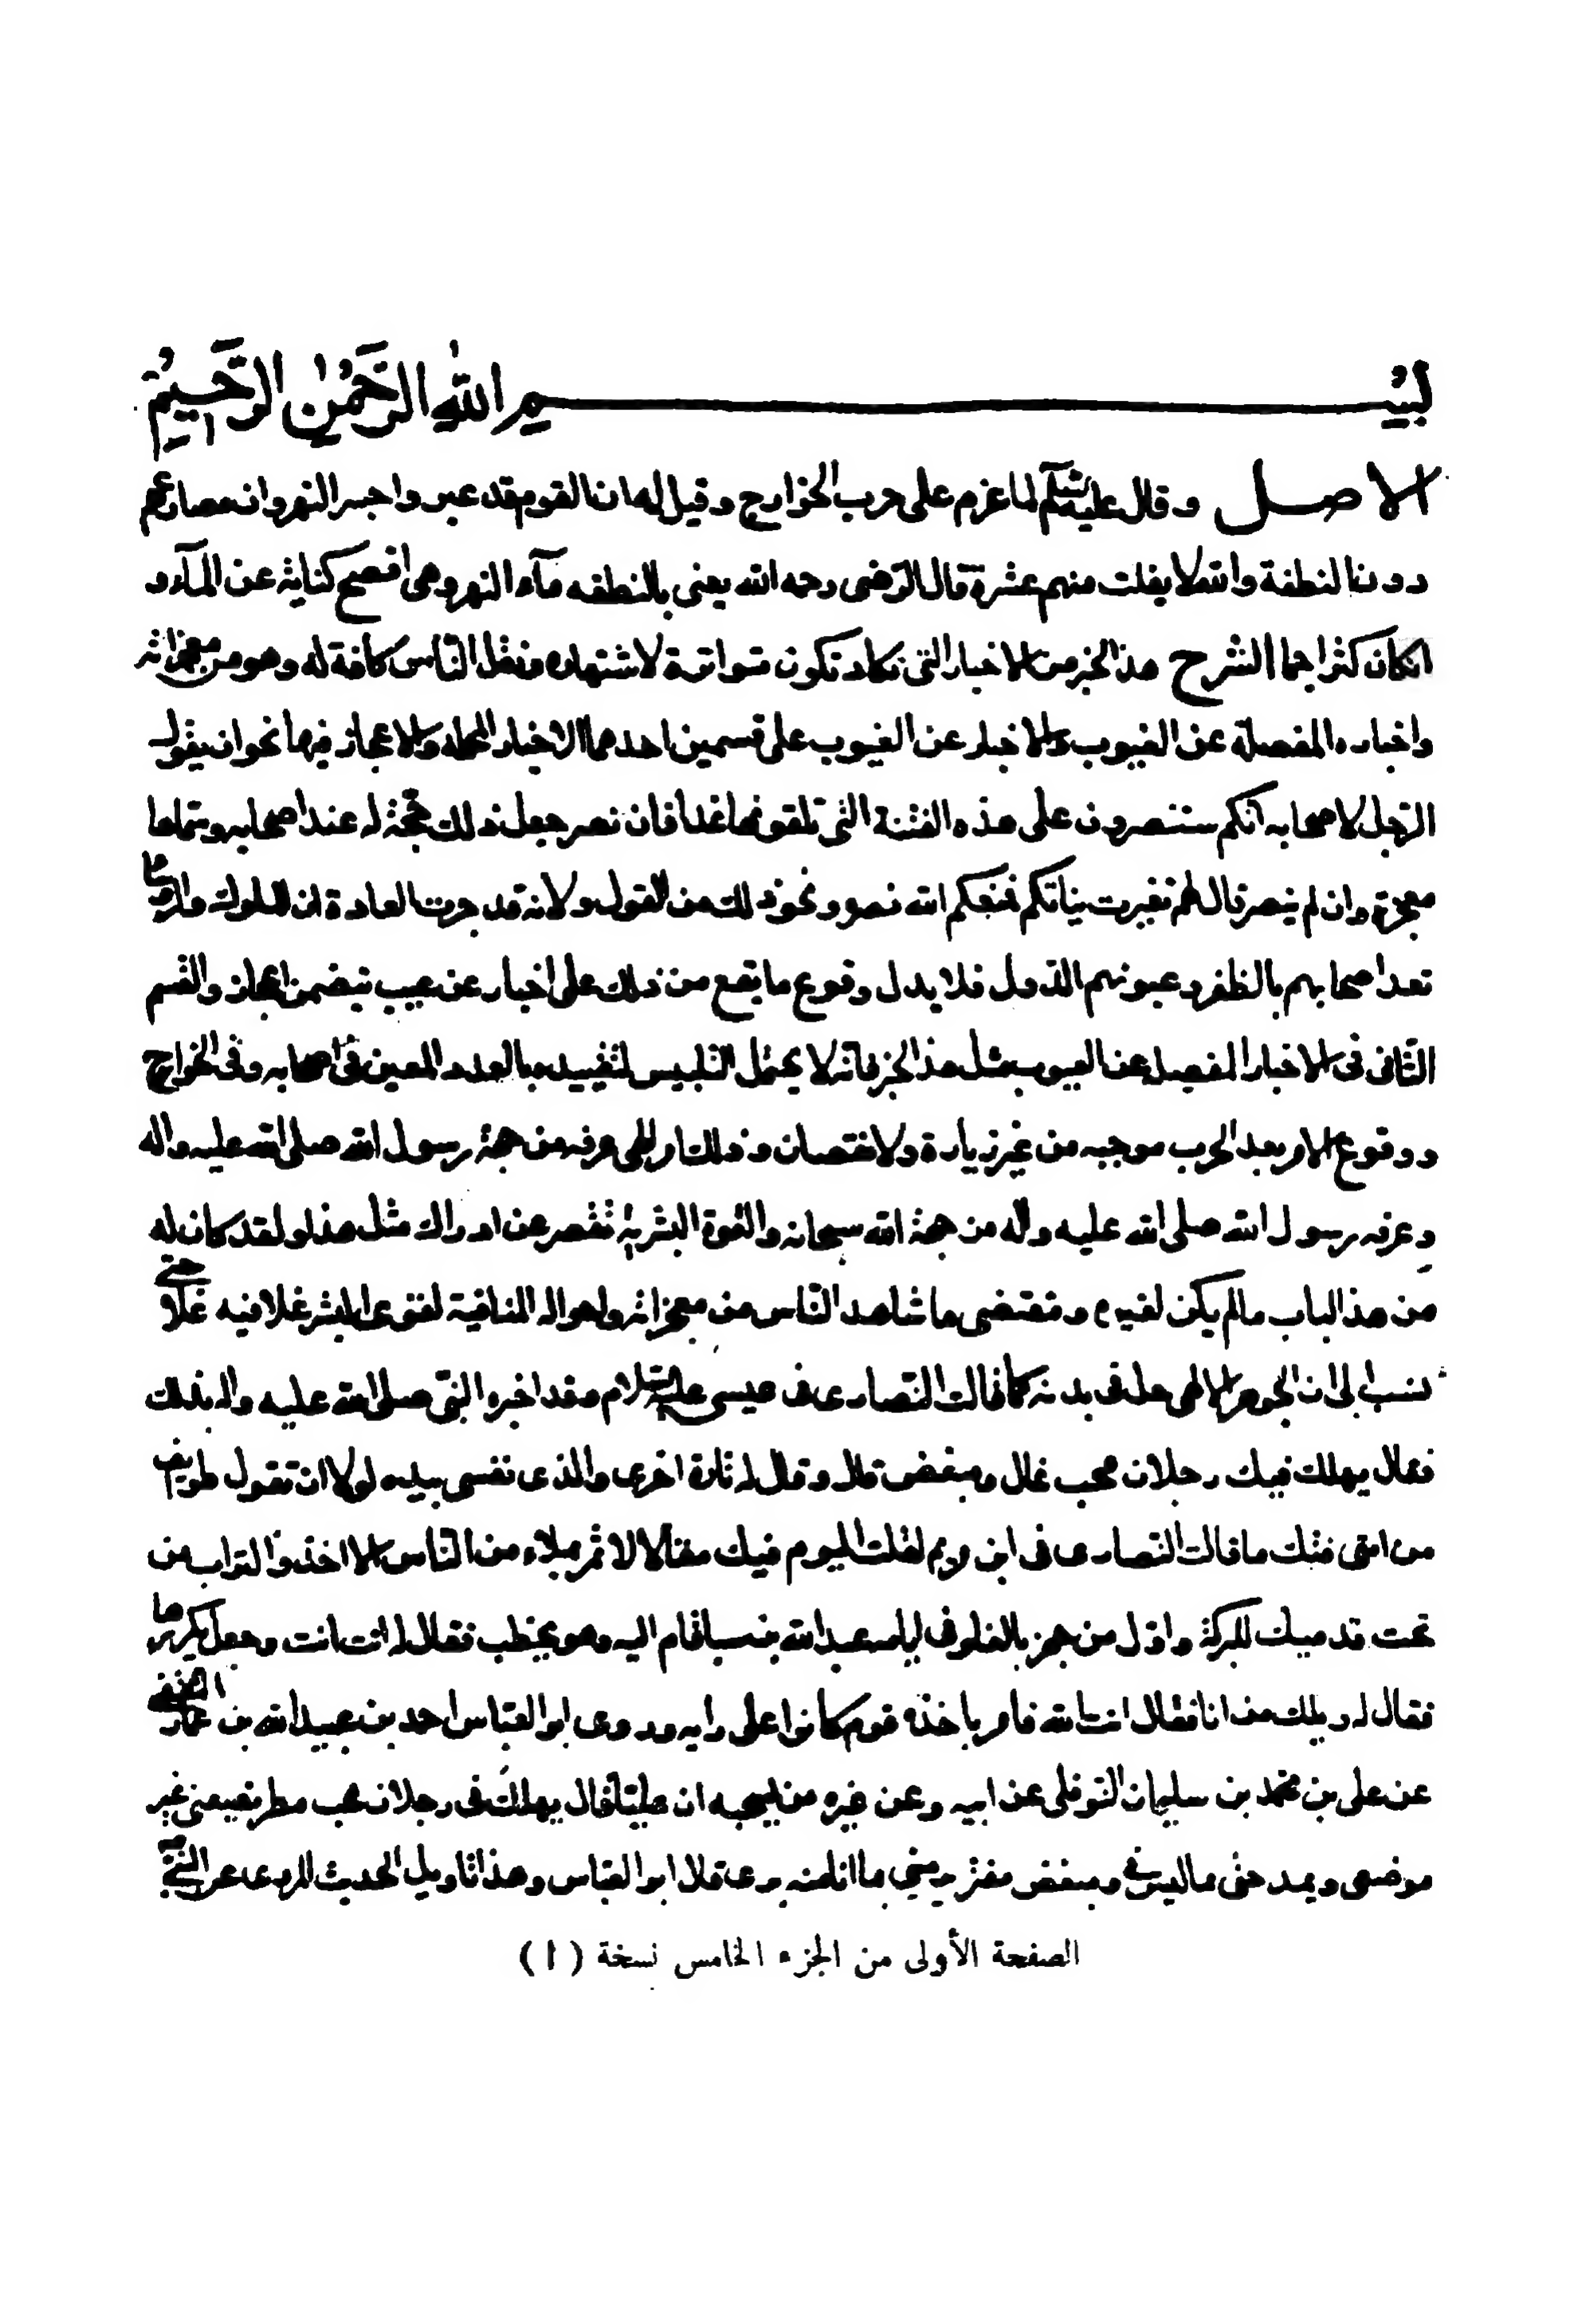 بســـــــــــــم الله الرحمن الرحيم
الاصل وقال عليه السلام لما عزم على حرب الخوارج وقيل له ان القوم قد عبروا جسر النهروان مصارعهم
دون النطفة والله لا يفلت منهم عشرة قال الرضى رحمه الله يعنى بالنطفه مآء النهر وهى افصح كناية عن المآء و
ان كان كثيرا جما الشرح هذا الخبر من الاخبار التى تكاد تكون متواترة لاشتهاره ونقل النّاس كافة له وهو من معجزاته
واخباره المفصلة عن الغيوب والاخبار عن الغيوب على قسمين احدهما الاخبار المجملة ولا اعجاز فيها نحو ان يقول
الرّجل لاصحابه انكم ستنصرون على هذه الفئة التى تلقونها غدا فان نصر جعل ذلك حجّة له عند اصحابه وسماها
معجزة وان لم ينصر قال لهم تغيرت نياتكم فمنعكم الله نصره ونحو ذلك من القول ولانه قد جرت العادة ان الملوك والرؤسا
تعد اصحابهم بالظفر و الدول فلا يدل وقوع ما يقع من ذلك على اخبار عن غيب يتضمن اعجازا والقسم
الثّانى فى الاخبار المفصلة عن الغيوب مثل هذا الخبر فانه لا يحتمل التلبيس لتقييده بالعدد المعين فى اصحابه وفى الخوارج
ووقوع الامر بعد الحرب بموجبه من غير زيادة ولا نقصان وذلك امر الهى عرفه من جهة رسول الله صلى الله عليه واله
وعرفه رسول الله صلى الله عليه واله من جهة الله سبحانه والقوة البشرية تقصر عن ادراك مثل هذا ولقد كان له
من هذا الباب مالم يكن لغيره و بمقتضى ما شاهد النّاس من معجزاته واحواله المنافية لقوى البشر غلا فيه من غلا حتى
نسب الى ان الجوهر الالهى حل فى بدنه كما قالت النّصارى فى عيسى عليه السلام وقد اخبره النبّى صلى الله عليه واله بذلك
فقال يهلك فيك رجلان محب غال ومبغض قال وقال له تارة اخرى والذى نفسى بيده لولا ان تقول طوايف
من امتى فيك ما قالت النّصارى فى ابن مريم لقلت اليوم فيك مقالا لا تمر بملاء من النّاس الا اخذوا التراب من
تحت قدميك للبركة واول من جهر بالغلو فى ايامه عبد الله بن سبا قام اليه وهو يخطب فقال له انت انت وجعل يكررها
فقال له ويلك من انا فقال انت الله فامر باخذه قوم كانوا على رايه وروى ابو العبّاس احمد بن عبيد الله بن عمار الثقفى
عن على بن محمّد بن سليمان النّوفلى عن ابيه وعن غيره من مشيخته ان عليّا قال يهلك فى رجلان محب مطر يضعنى غير
موضعى ويمدحنى بما ليس فى ومبغض مفتر يرمينى بما انا منه برى قال ابو العباس وهذا تاويل الحديث المروى عن النّبى
الصفحة الأولى من الجزء الخامس نسخة ( ا )